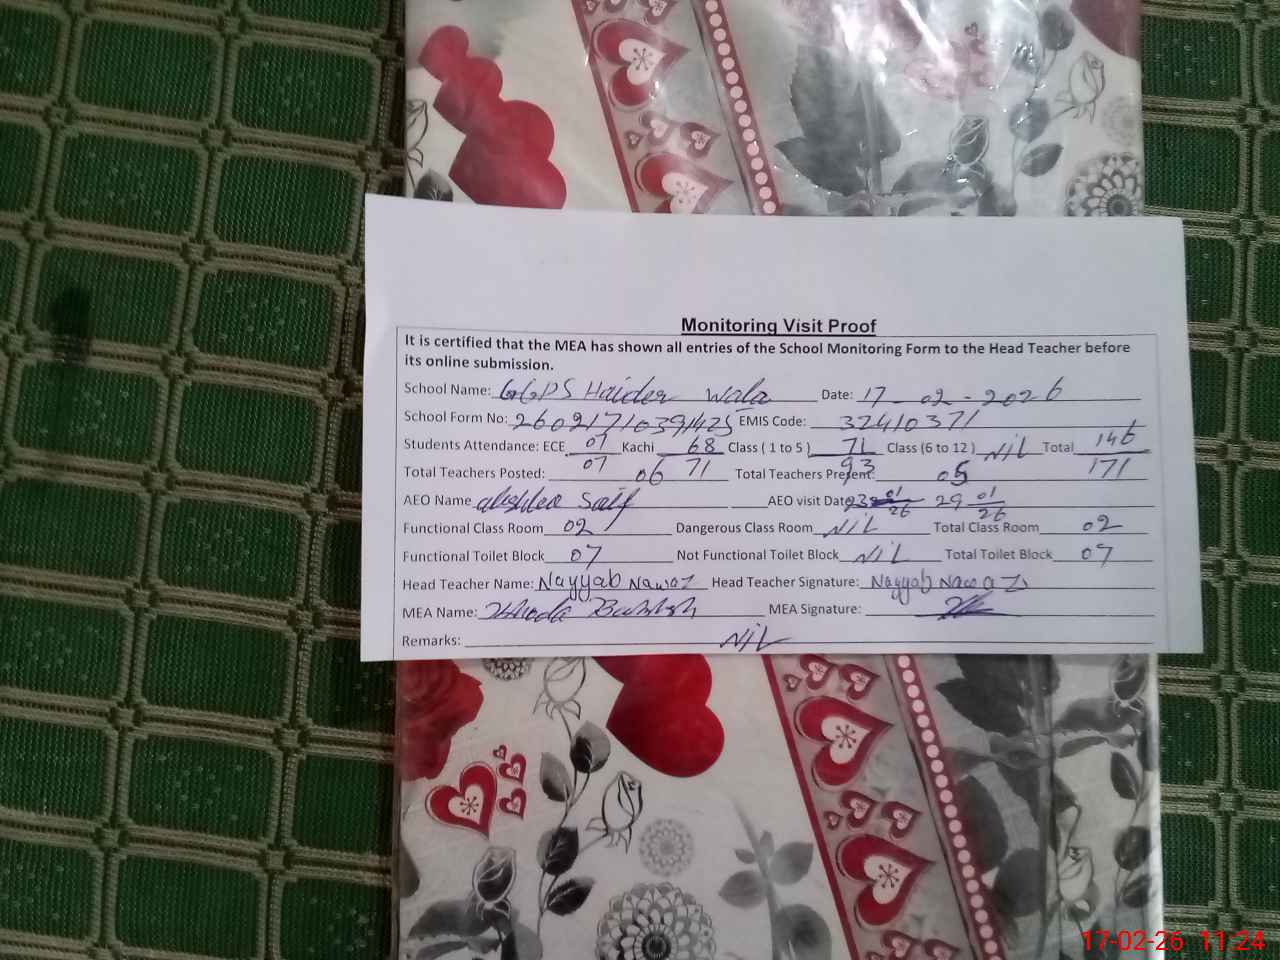 Monitoring Visit Proof
It is certified that the MEA has shown all entries of the School Monitoring Form to the Head Teacher before
its online submission.
School Name: GGPS Haider Wala Date: 17-02-2026
School Form No: EMIS Code: 32410371
Students Attendance: ECE 07 Kachi 68 Class ( 1 to 5 ) 71 Class (6 to 12 ) NIL Total 146
07 71 93 171
Total Teachers Posted: 06 Total Teachers Present: 05
AEO Name Saif AEO visit Date 29 01/26
Functional Class Room 02 Dangerous Class Room NIL Total Class Room 02
Functional Toilet Block 07 Not Functional Toilet Block NIL Total Toilet Block 07
Head Teacher Name: Nayyab Nawaz Head Teacher Signature: Nayyab Nawaz
MEA Name: MEA Signature:
Remarks: NIL
17-02-26 11:24